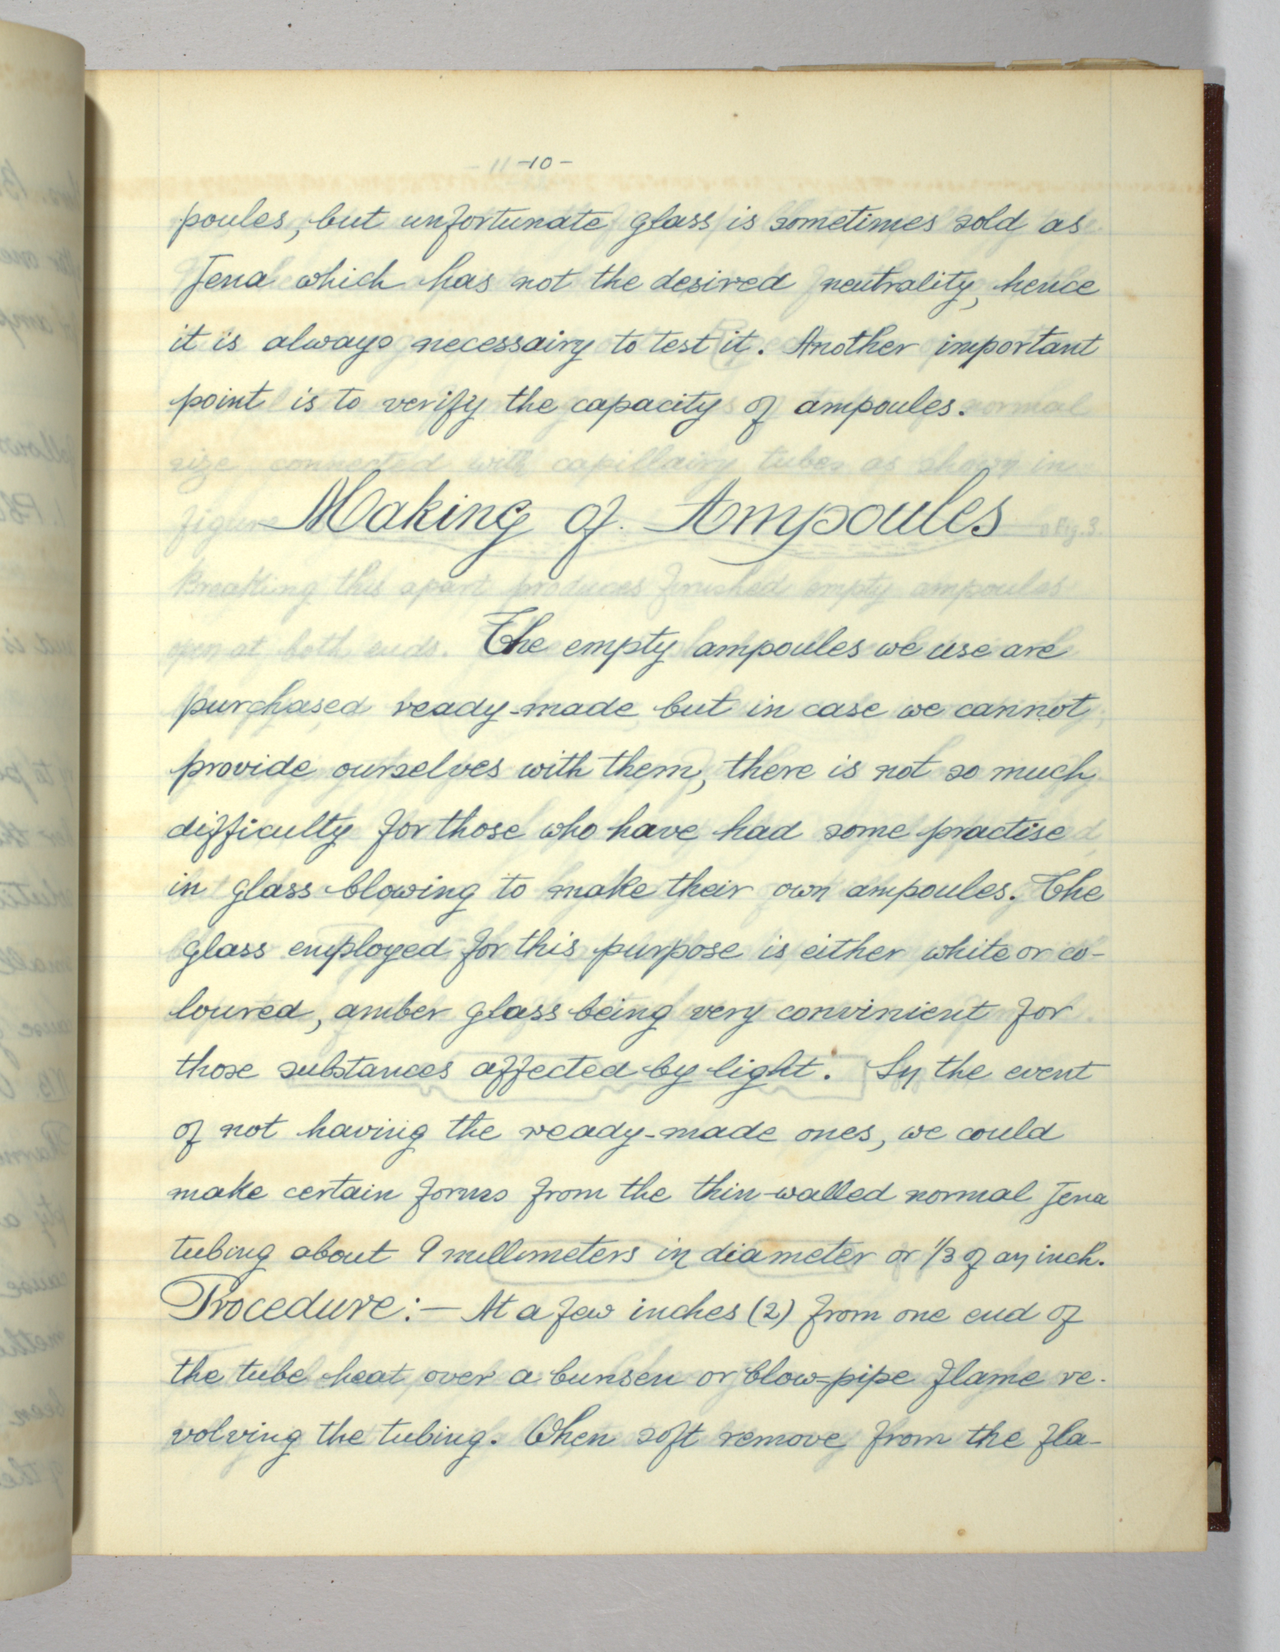 -10-
poules, but unfortunate glass is sometimes sold as
Jena which has not the desired neutrality, hence
it is always necessairy to test it. Another important
point is to verify the capacity of ampoules.
Making of Ampoules
The empty ampoules we use are
purchased ready-made but in case we cannot
provide ourselves with them, there is not so much
difficulty for those who have had some practise
in glass blowing to make their own ampoules. The
glass employed for this purpose is either white or co-
loured, amber glass being very convinient for
those substances affected by light. In the event
of not having the ready-made ones, we could
make certain forms from the thin-walled normal Jena
tubing about 9 millimeters in diameter or 1/3 of an inch.
Procedure:— At a few inches (2) from one end of
the tube heat over a bunsen or blow-pipe flame re-
volving the tubing. When soft remove from the fla-